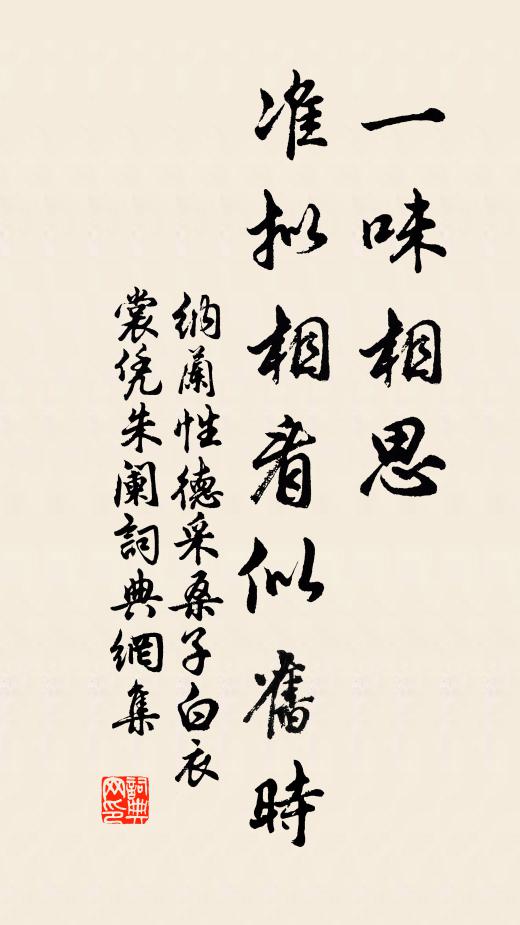 一味相思
准拟相看似舊時
纳蘭性德采桑子白衣
裳凭朱闌詞典網集
詞典
网印